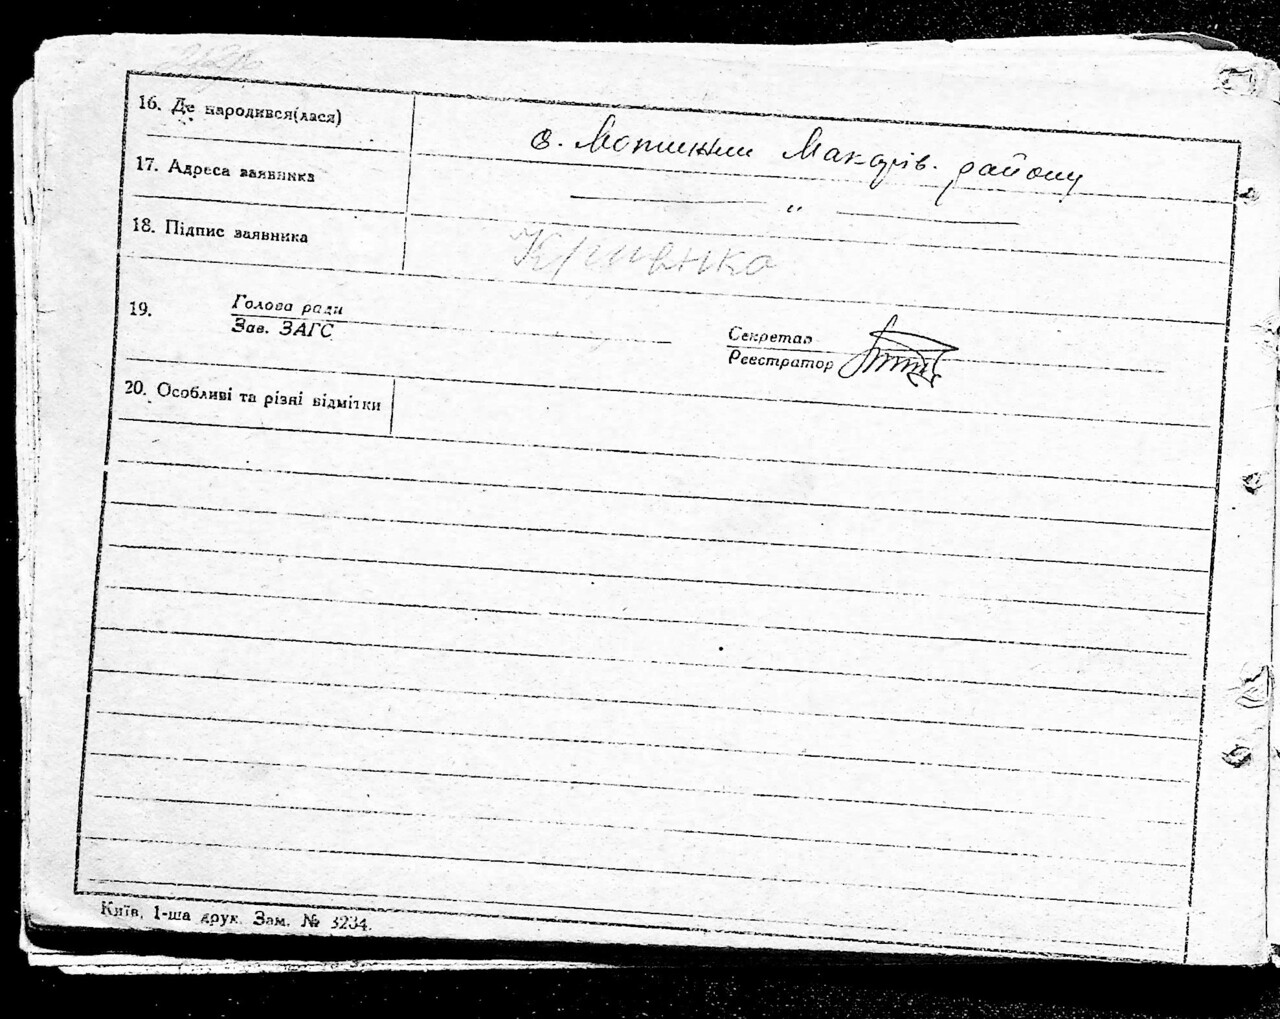 16. Де народився(лася)
с. Мотижин Макарів. району
17. Адреса заявника
— " —
18. Підпис заявника
Кривенко
19. Голова ради
Зав. ЗАГС
Секретар
Реєстратор
20. Особливі та різні відмітки
Київ, 1-ша друк. Зам. № 3234.